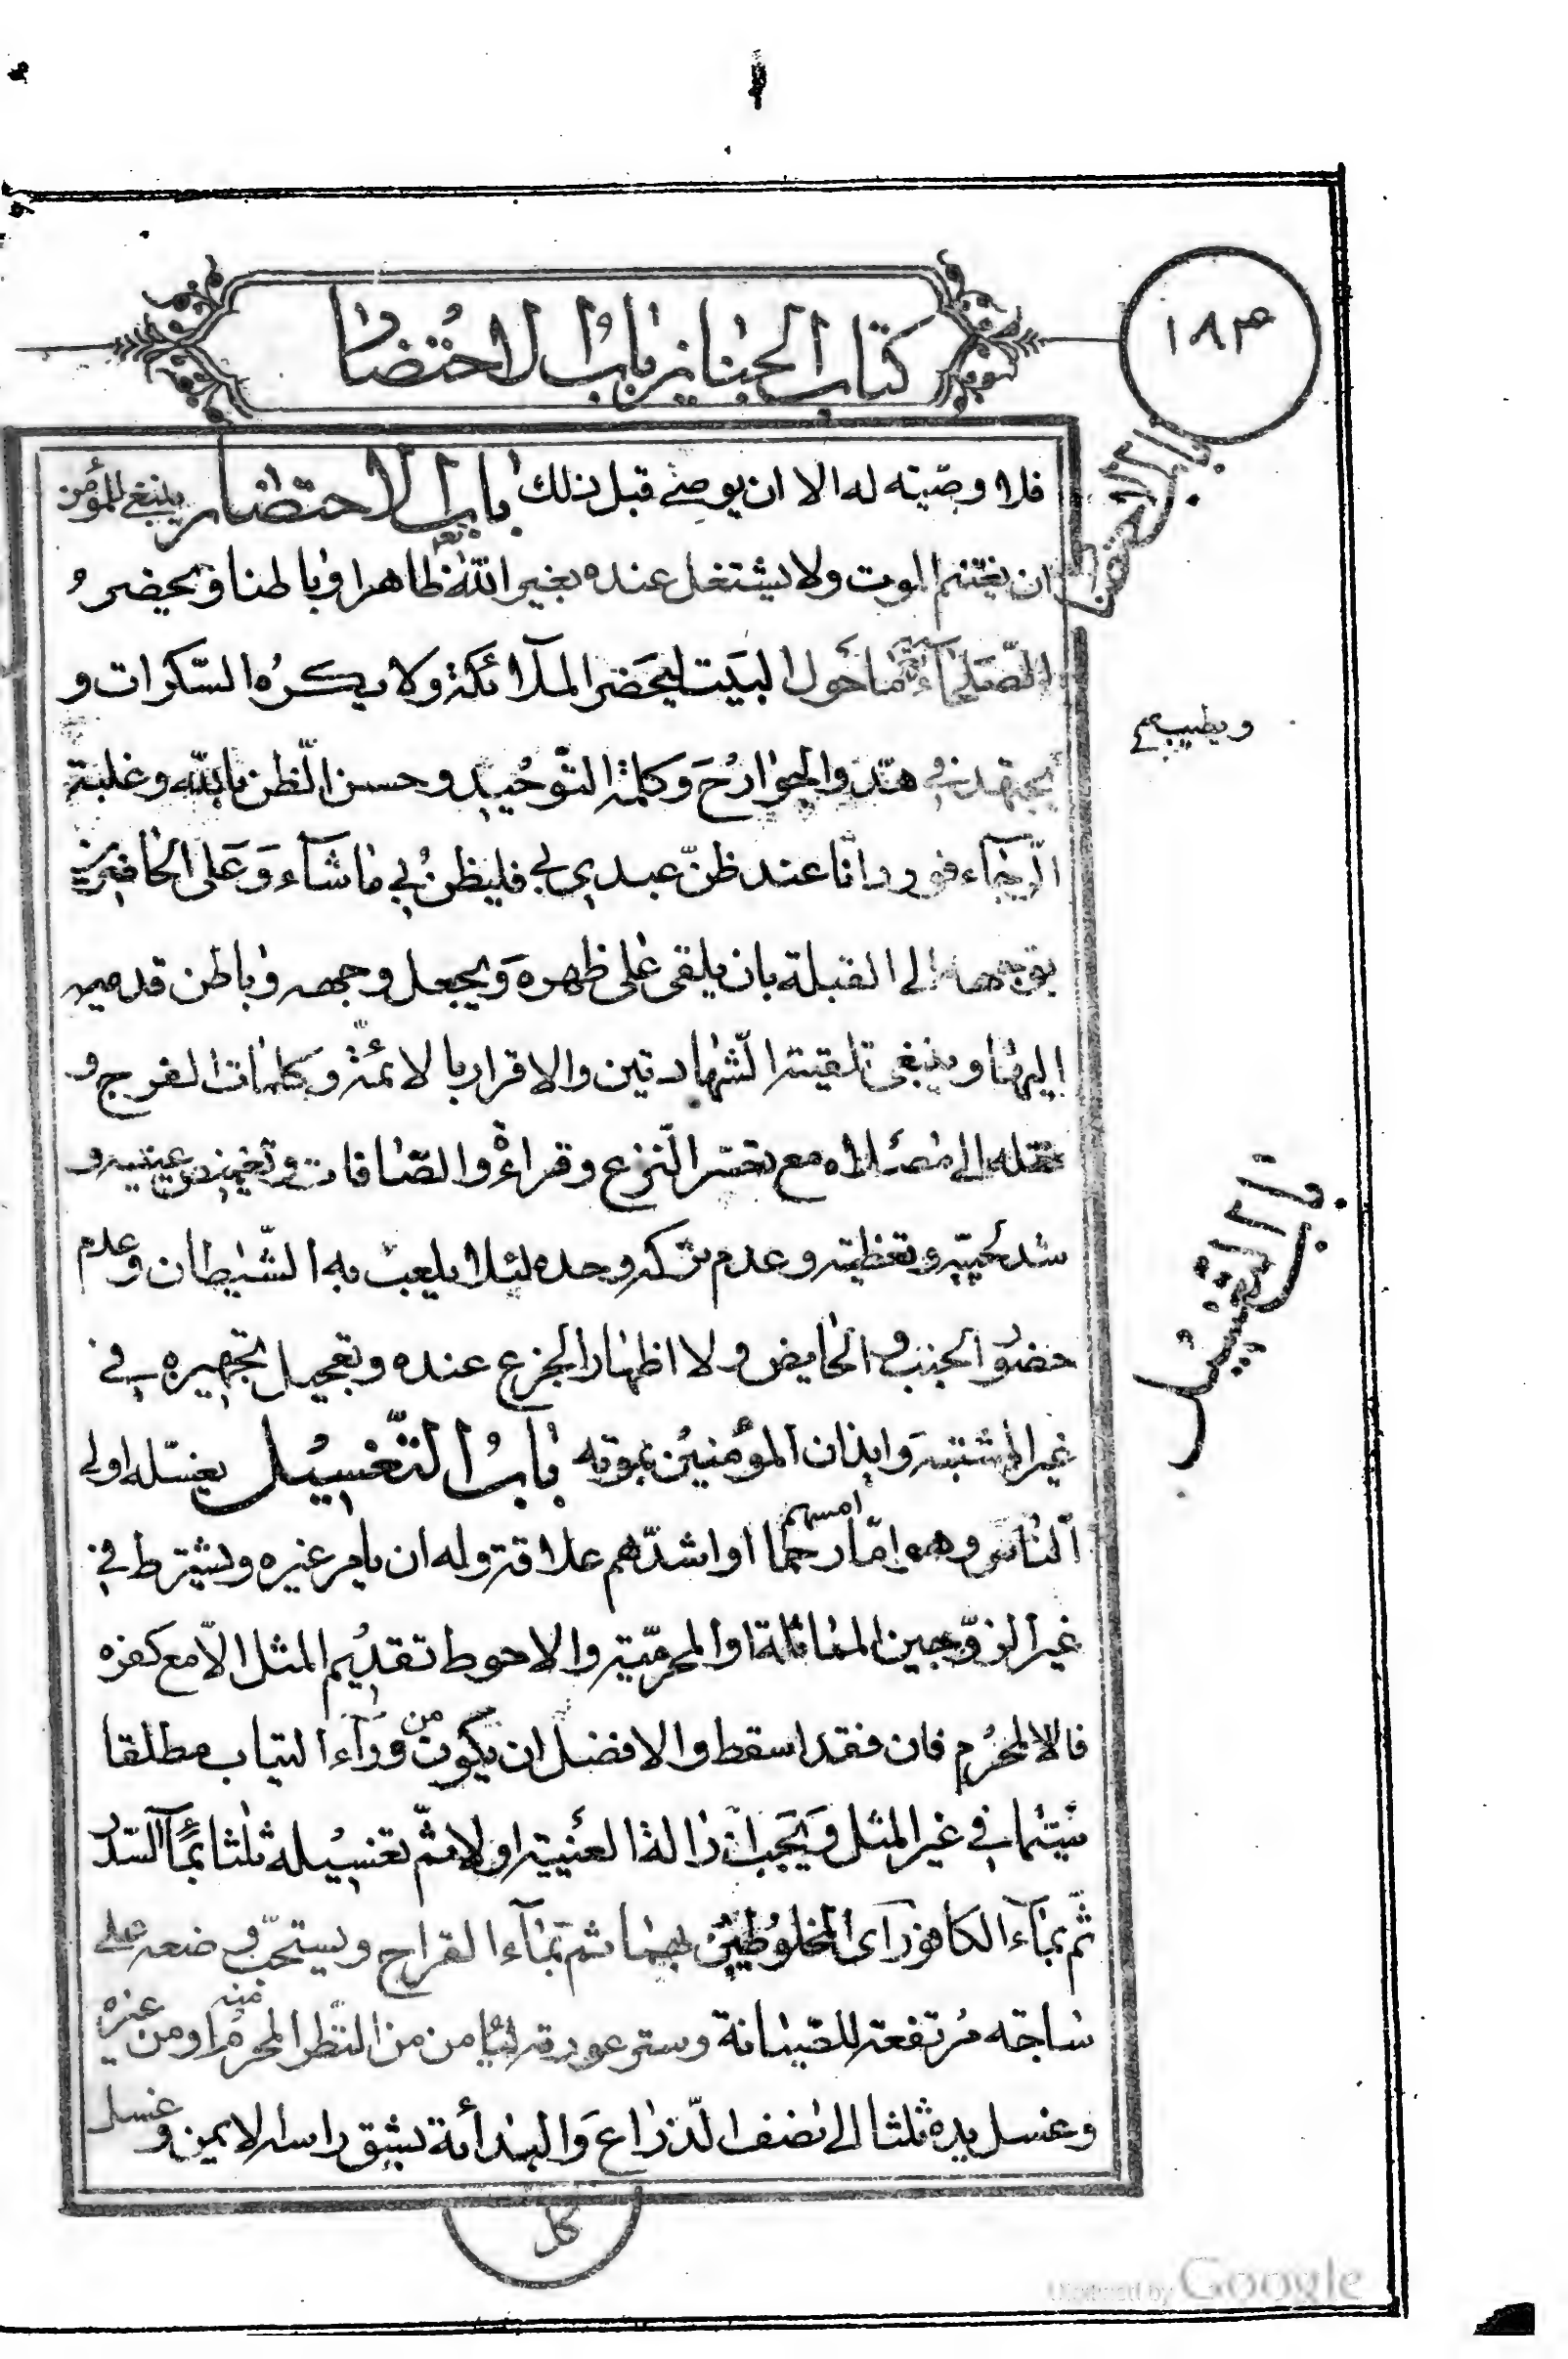 ١٨٣
كتاب الجنايز باب الاحتضار
فلا وصيّته له الا ان يوصي قبل ذلك باب الاحتضار ينبغي للمؤمن
ان يغتنم الموت ولا يشتغل عنده بغير الله ظاهرا وباطنا ويحضر
الصّلحاء ما حول البيت ليحضر الملائكة ولا يكره السّكرات و
ويطيب
يجتهد في والجوارح وكلمة التوحيد وحسن الظن بالله وغلبة
الرّجاء فورد انا عند ظنّ عبدي بي فليظنّ بي ما شاء وعلى الحاضرين
توجهه الى القبلة بان يلقى على ظهره ويجعل وجهه وباطن قدميه
اليها وينبغي تلقينه الشّهادتين والاقرار بالائمّة وكلمات الفرج و
نقله الى مصلاه مع تعسّر النّزع وقراءة والصّافات وتغميض عينيه و
شد لحييه وتغطيته وعدم تركه وحده لئلا يلعب به الشّيطان وعدم
حضور الجنب والحايض ولا اظهار الجزع عنده وتعجيل تجهيزه في
غير المشتبه وايذان المؤمنين بموته باب التّغسيل يغسّله اولى
النّاس وهو امّا امسهم رحما او اشدّهم علاقة وله ان يامر غيره ويشترط في
غير الزوّجين المماثلة او المحرميّة والاحوط تقديم المثل الّا مع كفره
فالا المحرم فان فقد اسقط والافضل ان يكون من وراء الثياب مطلقا
سيّما في غير المثل ويجب ازالة العينية اولا ثمّ تغسيله ثلثا بماء السّدر
ثمّ بماء الكافور اى المخلوطين بهما ثم بماء القراح ويستحبّ وضعه على
ساجه مرتفعة للصّيانة وستر عورته ليامن من النّظر المحرم منه او من غيره
وغسل يده ثلثا الى نصف الذّراع والبدأة بشق راسه الايمن وغسل
كل
باب الاحتضار
باب التّغسيل
Digitized by Google